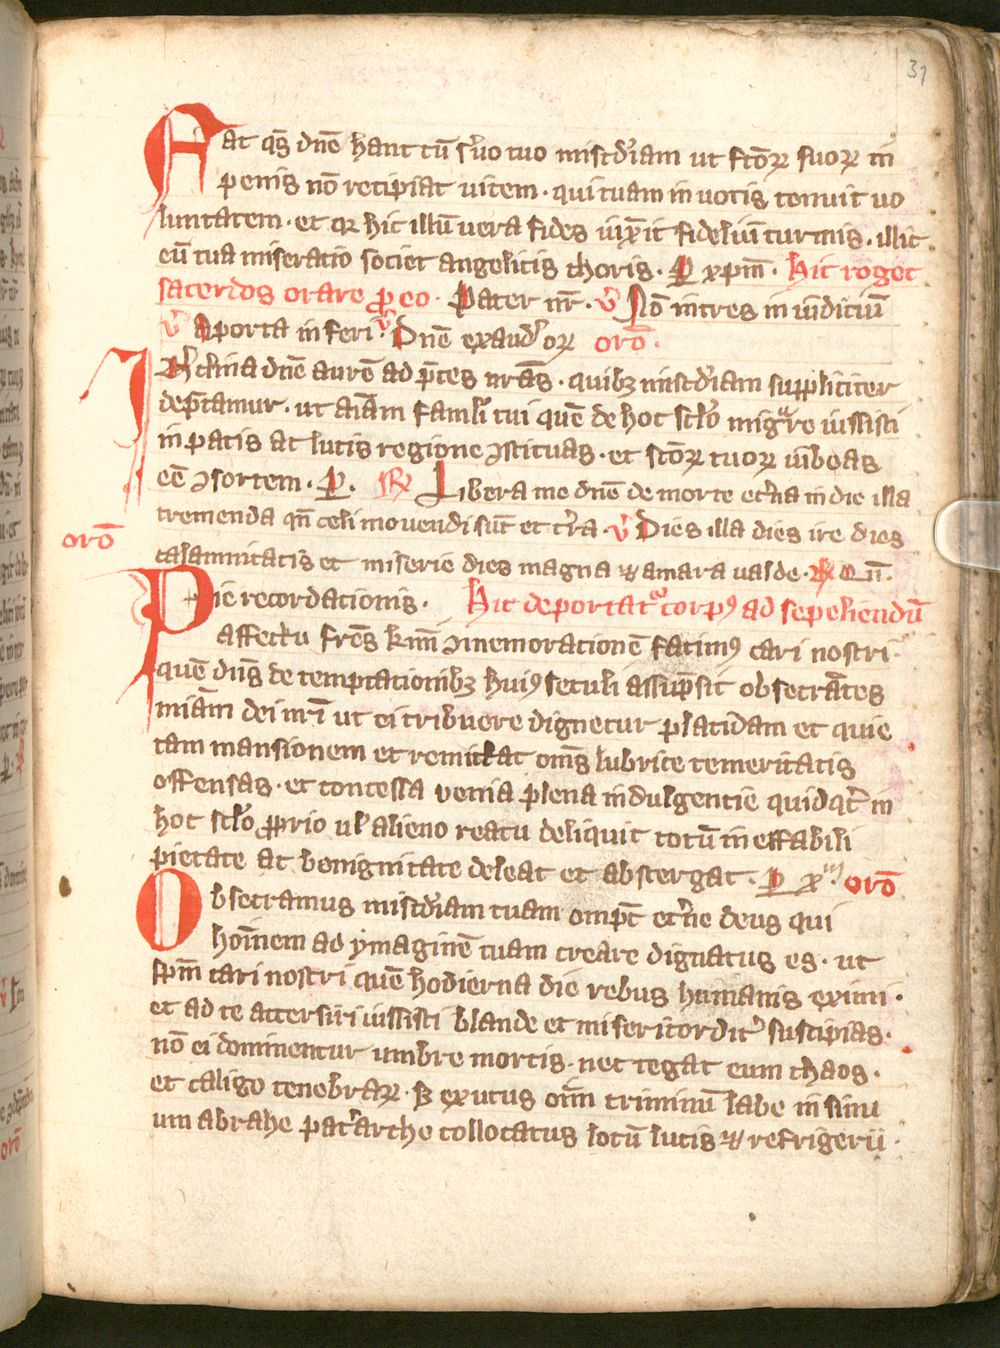 31
Fat qs dne hanc cu s'uo tuo misc'diam ut fcoꝝ suoꝝ in
penis no recipiat uicem · qui tuam in uotis tenuit uo
luntatem · et qꝛ hic illu uera fides iuxit fideliu turmis · illic
eu tua miseratio societ angelicis choris · P xpm · Hic roget
sacerdos orare p eo · Pater nr · V No intres in iudiciu
V A porta inferi V Dne exaud' or oro ·
Inclina dne aure ad pces nras · quibꝫ misc'diam suppliciter
dep'camur · ut aiam famli tui que de hoc sclo migrare iussisti
in pacis ac lucis regione ꝯstituas · et scoꝝ tuoꝝ iubeas
ee ꝯsortem · P · R Libera me dne de morte et'na in die illa
tremenda qn celi mouendi sut et t'ra · V Dies illa dies ire dies
oro
calamitatis et miserie dies magna et amara ualde · R Qn ·
Pie recordacionis · Hic deportat' corpꝰ ad sepeliendu
affectu fres kmi ꝯmemoracione facimꝰ cari nostri ·
que dns de temptacionibꝫ huiꝰ seculi assupsit obsecrates
miam dei nri ut ei tribuere dignetur placidam et quie
tam mansionem et remittat oms lubrice temeritatis
offensas · et concessa uenia plena indulgencie quidqt in
hoc sclo pprio ul' alieno reatu deliquit totu ineffabili
pietate ac benignitate deleat et abstergat · P x oro
Obsecramus misc'diam tuam ompt et'ne deus qui
hoinem ad ymagine tuam creare dignatus es · ut
spm cari nostri que hodierna die rebus humanis eximi ·
et ad te accersiri iussisti blande et misericordit' suscipias ·
no ei dominentur umbre mortis · nec tegat eum chaos ·
et caligo tenebraꝝ · sꝫ exutus oim criminu labe in sinu
um abrahe pat'arche collocatus locu lucis et refrigerii ·